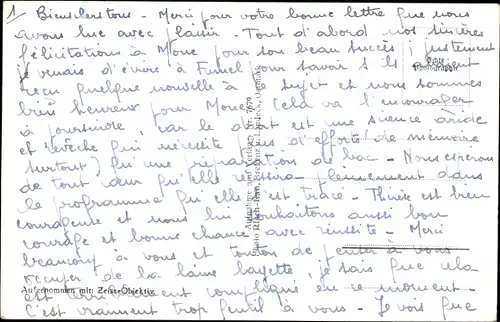 1 Bien chers tous - Merci pour votre bonne lettre que nous
avons lue avec plaisir - Tout d'abord nos sincères
félicitations à Mone pour son beau succès ; justement
je venais d'écrire à Fumel pour savoir s'ils avaient
reçu quelque nouvelle à ce sujet et nous sommes
bien heureux pour Mone. Cela va l'encourager
à poursuivre, car le droit est une science aride
et revêche qui nécessite plus d'efforts de mémoire
surtout) qu'une préparation de bac - Nous espérons
de tout cœur qu'elle réussira pleinement dans
le programme qu'elle s'est tracé - Thérèse est bien
courageuse et nous lui souhaitons aussi bon
courage et bonne chance avec réussite - Merci
beaucoup à vous et tonton de penser à vous
occuper de la layette, je sais que cela
est terriblement compliqué en ce moment -
C'est vraiment trop gentil à vous - Je vois que
Echte
Photographie
Aufnahme und Verlag
Aufgenommen mit: Zeiss-Objektiv